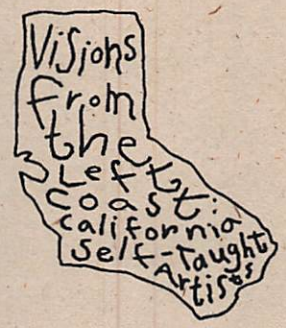 Visions
from
the
Left
Coast:
California
Self-Taught
Artists